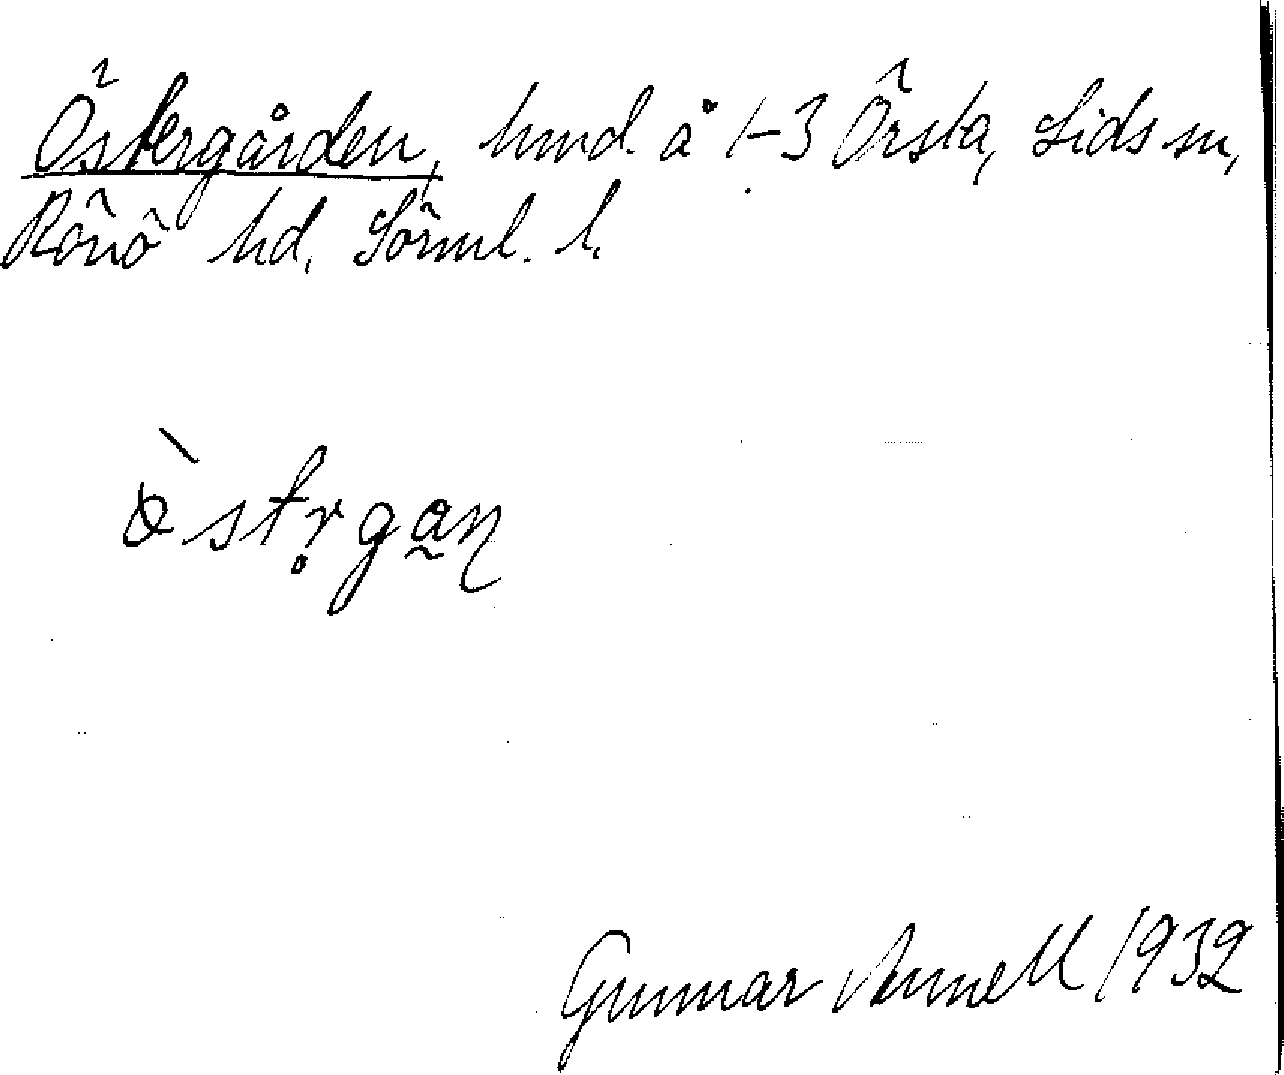 Östergården, hmd. å 1-3 Örsta, Lids sn,
Rönö hd, Sörml. l.
ö̀str̥gan̰
Gunnar 1932